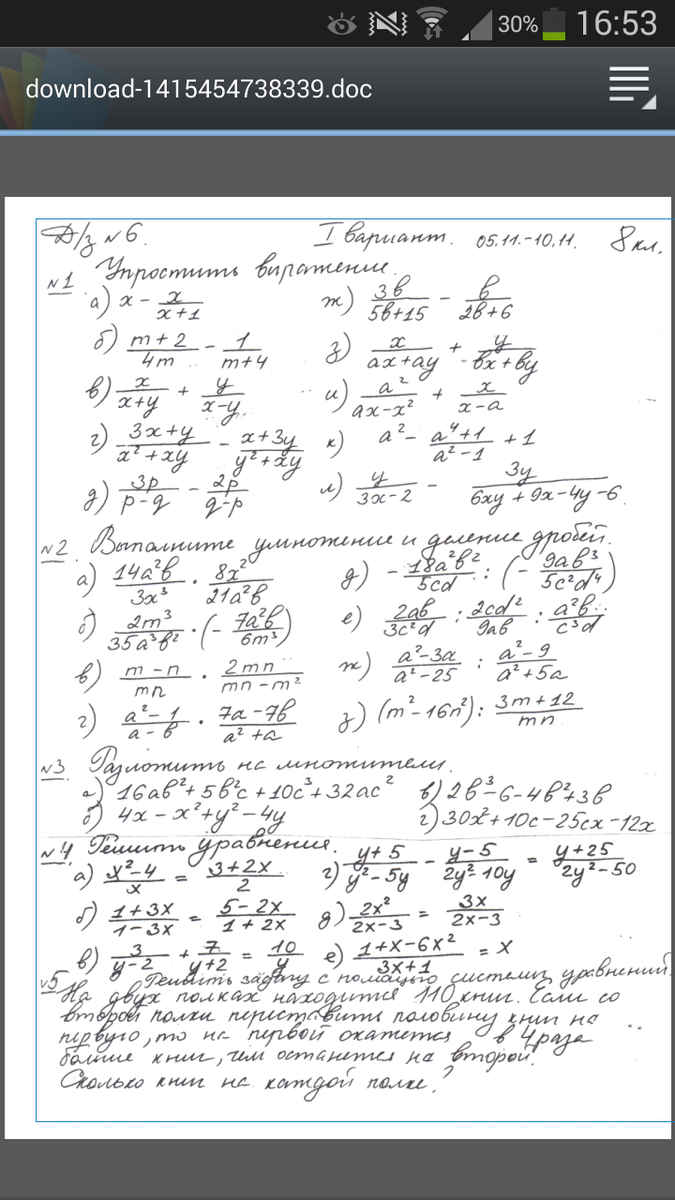 30% 16:53
download-1415454738339.doc
Д/з №6. I вариант. 05.11.-10.11. 8 кл.
№1 Упростить выражение.
а) x - x/(x+1) ж) 3b/(5b+15) - b/(2b+6)
б) (m+2)/4m - 1/(m+4) з) x/(ax+ay) + y/(bx+by)
в) x/(x+y) + y/(x-y) и) a²/(ax-x²) + x/(x-a)
г) (3x+y)/(x²+xy) - (x+3y)/(y²+xy) к) a² - (a⁴+1)/(a²-1) + 1
д) 3p/(p-q) - 2p/(q-p) л) y/(3x-2) - 3y/(6xy+9x-4y-6)
№2 Выполните умножение и деление дробей.
а) 14a²b/3x³ · 8x²/21a²b д) - 18a²b²/5cd : (- 9ab³/5c²d⁴)
б) 2m³/35a³b² · (- 7a²b/6m³) е) 2ab/3c²d : 2cd²/9ab : a²b/c³d
в) (m-n)/mn · 2mn/(mn-m²) ж) (a²-3a)/(a²-25) : (a²-9)/(a²+5a)
г) (a²-1)/(a-b) · (7a-7b)/(a²+a) з) (m²-16n²) : (3m+12)/mn
№3 Разложить на множители.
а) 16ab²+5b²c+10c³+32ac² в) 2b³-6-4b²+3b
б) 4x-x²+y²-4y г) 30x²+10c-25cx-12x
№4 Решить уравнения.
а) (x²-4)/x = (3+2x)/2 г) (y+5)/(y²-5y) - (y-5)/(2y²-10y) = (y+25)/(2y²-50)
б) (1+3x)/(1-3x) = (5-2x)/(1+2x) д) 2x²/(2x-3) = 3x/(2x-3)
в) 3/(y-2) + 7/(y+2) = 10/y е) (1+x-6x²)/(3x+1) = x
№5 Решить задачу с помощью системы уравнений.
На двух полках находится 110 книг. Если со
второй полки переставить половину книг на
первую, то на первой окажется в 4 раза
больше книг, чем останется на второй.
Сколько книг на каждой полке?